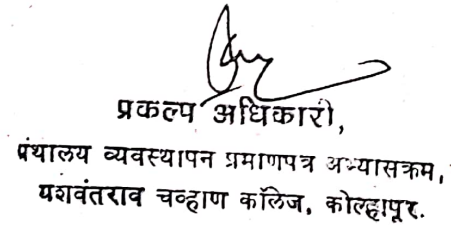 प्रकल्प अधिकारी,
ग्रंथालय व्यवस्थापन प्रमाणपत्र अभ्यासक्रम,
यशवंतराव चव्हाण कॉलेज, कोल्हापूर.